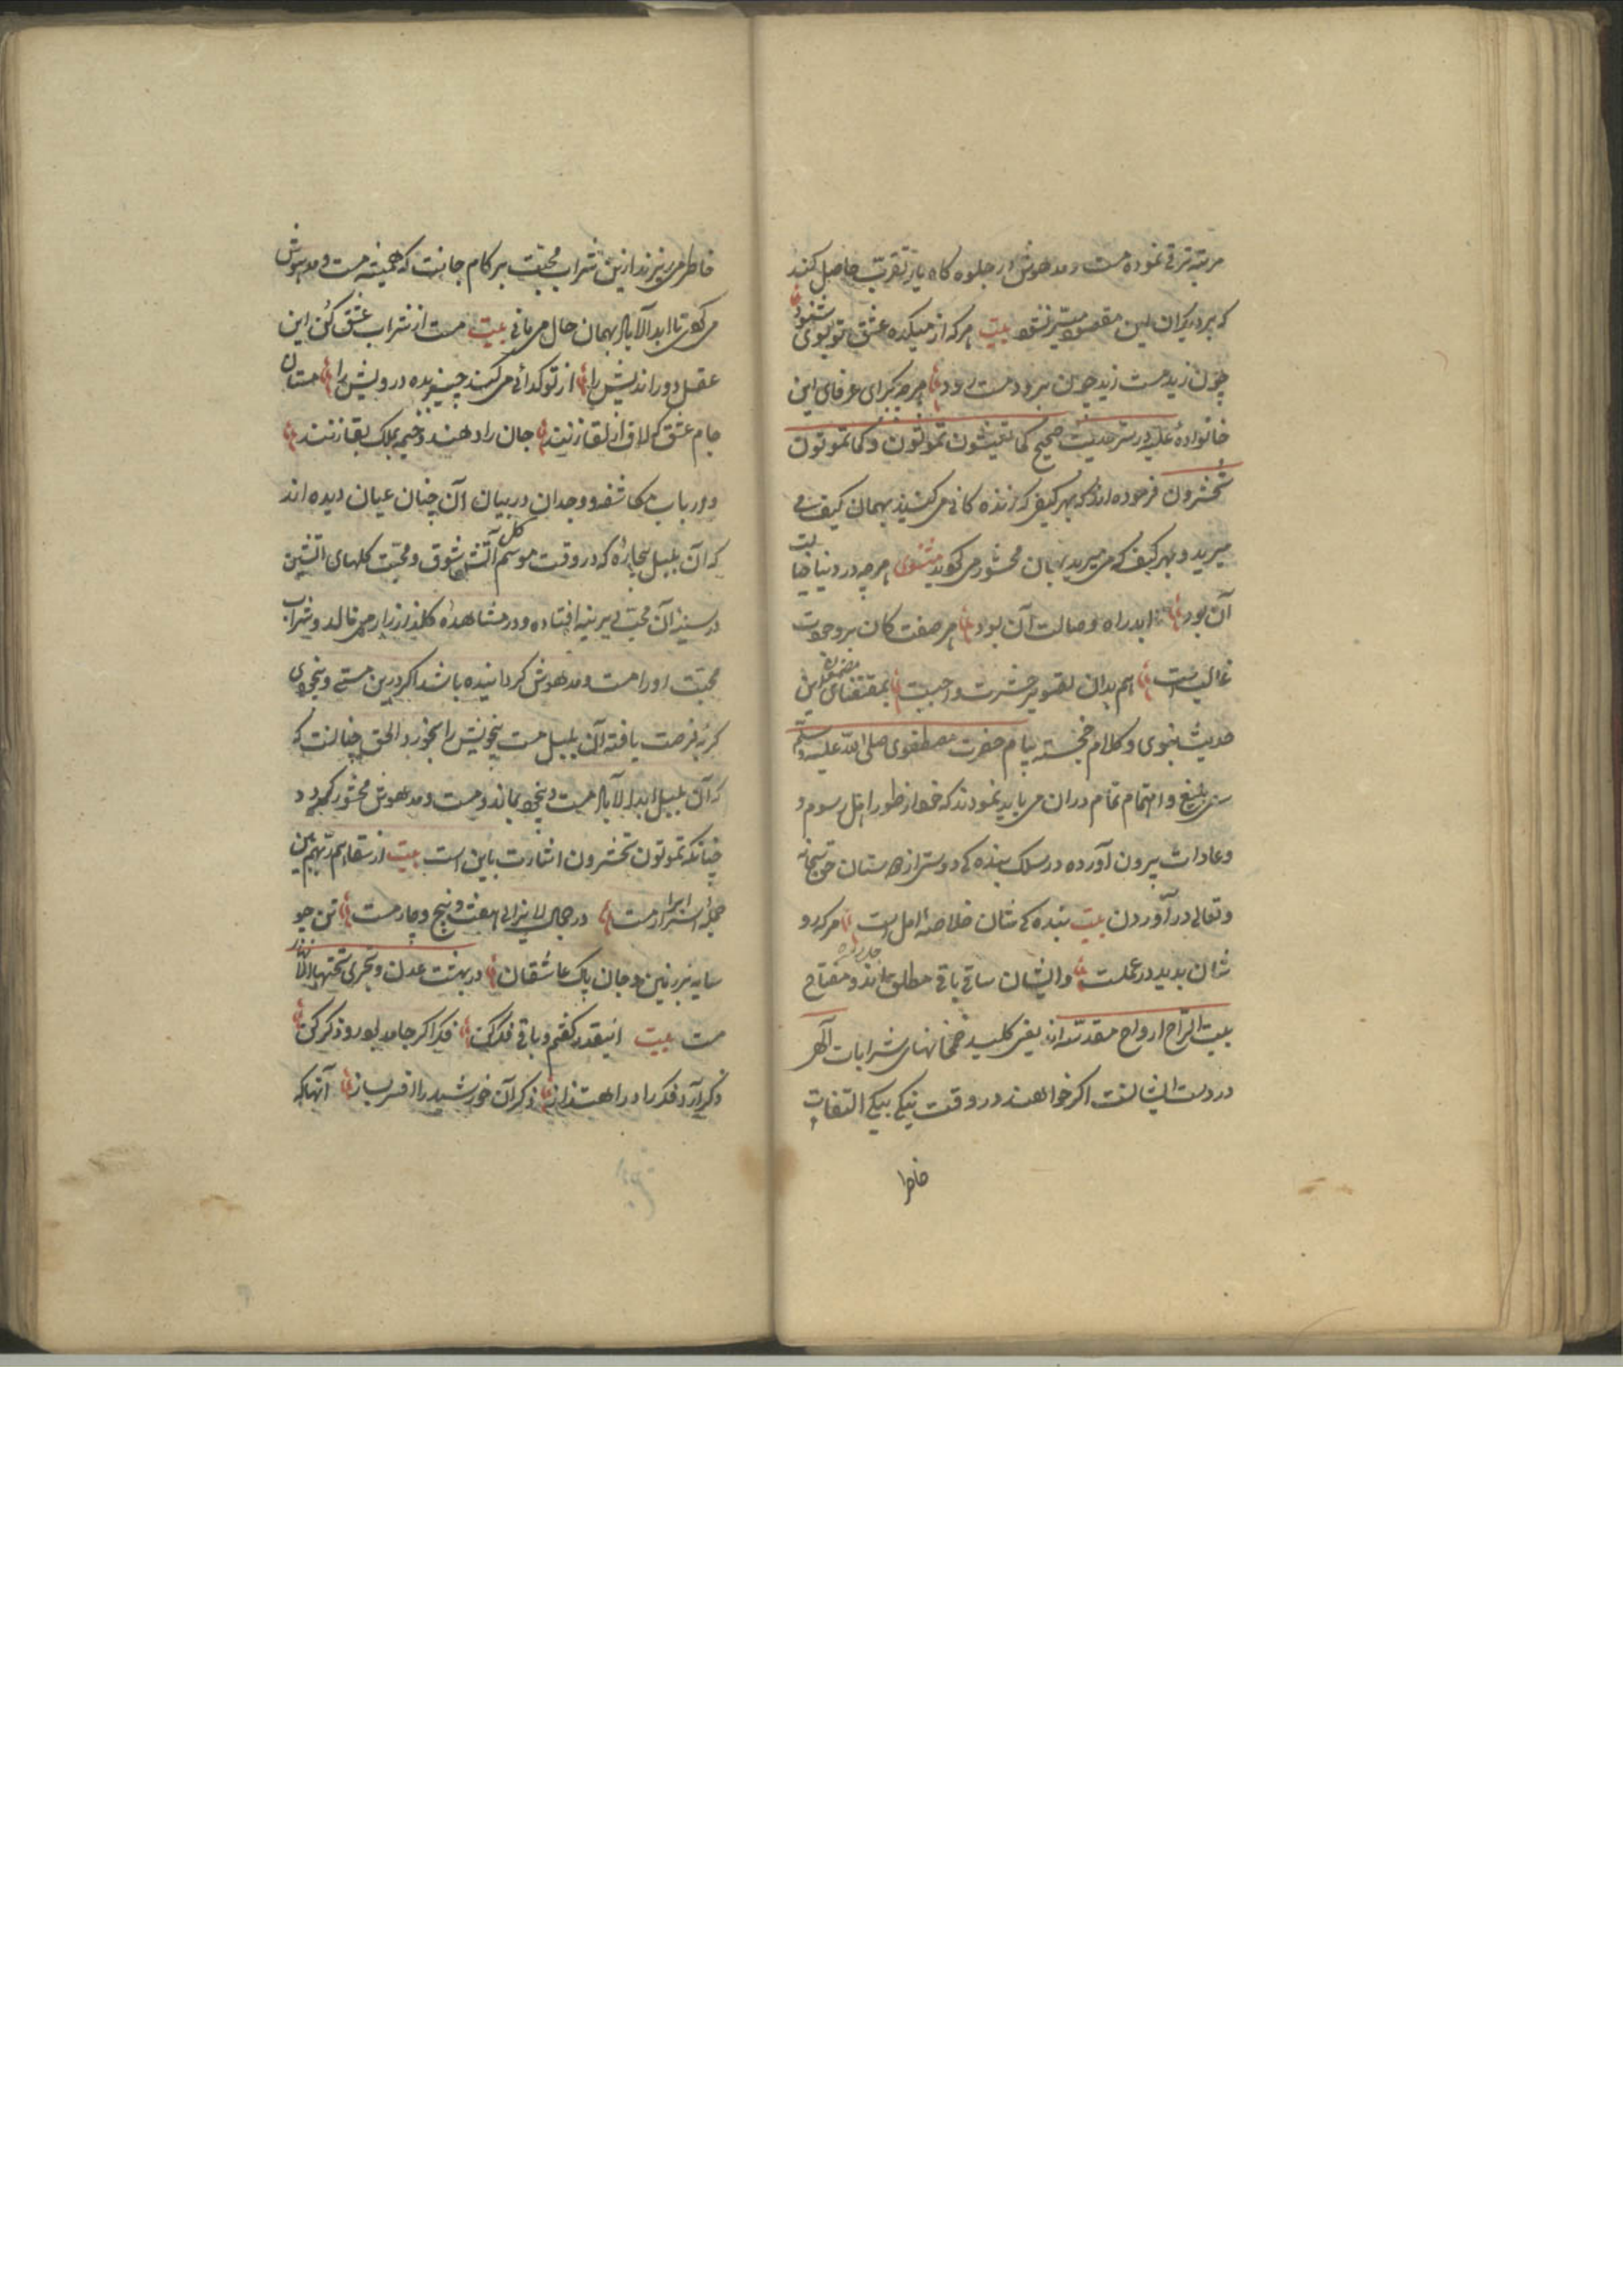 مرتبه ترقی نموده مست و مدهوش در جلوه کاه یار تقرب حاصل کنند
که بر دیکران این مقصود میسر نشود بیت هر که از میکده عشق تو بوی شنود
چون زید مست زید چون برود مست رود هر چه کبرای عرفای این
خانواده علیه در سر حدیث صحیح کما تعیشون تموتون و کما تموتون
تحشرون فرموده اند که بهر کیف که زنده کانی می کنید بهمان کیف می
میرید و بهر کیف که می میرید بهمان محشور می کردید مثنوی هر چه در دنیا خیالت
آن بود تا ابد راه وصالت آن بود هر صفت کان بر وجودت
غالبست هم بدان تصویر حشرت واجبست بمقتضای مضمون این
حدیث نبوی و کلام خجسته پیام حضرت مصطفوی صلی الله علیه و سلم
سعی بلیغ و اهتمام تمام دران می باید نمودند که خود از طور اهل رسوم و
و عادات بیرون آورده در سلک بنده کی دوستی از دوستان حق سبحانه
و تعالی در آوردن بیت بنده کی شان خلاصه امل است هر که رو
شان بدید در عملست و ایشان ساقی باقی مطلق اند و مفتاح
بیت الراح ارواح مقدسه اند یعنی کلید خمخانهای شرابات الهی
در دست ایشانست اکر خواهند در وقت نیکی بیکی التفات
خاطر
خاطر می ریزند ازین شراب محبت بر کام جانت که همیشه مست و مدهوش
می کوی تا ابد الآباد بهمان حال می مانی بیت مست از شراب عشق کن این
عقل دور اندیش را از تو کدائی می کنند چیزی بده درویش را مستان
جام عشق که لاف از لقا زنند جان را دهند و خیمه بملک بقا زنند
و ارباب مکاشفه و وجدان در بیان آن چنان عیان دیده اند
که آن بلبل بیچاره که در وقت موسم کل آتش شوق و محبت کلهای آتشین
در سینه آن محبت دیرینه افتاده و در مشاهده کلزار زار می نالد و شراب
محبت او را مست و مدهوش کردانیده باشد اکر درین مستی و بیخودی
کربه فرصت یافته آن بلبل مست بیخویش را بخورد الحق چنانست که
که آن بلبل ابد الآباد مست و بیخود بماند و مست و مدهوش محشور کردد
چنانکه تموتون تحشرون اشارت باین است بیت از سقاهم ربهم بین
جمله ابرار مست در جمال لایزالی هفت و پنج و چار مست تن چو
سایه بر زمین و جان پاک عاشقان در بهشت عدن و تجری تحتها الانهار
مست بیت اینقدر کفتم و باقی فکر کن فکر اکر جامد بود رو ذکر کن
ذکر آرد فکر را در اهتزاز ذکر آن خورشید را افسر بساز آنها که